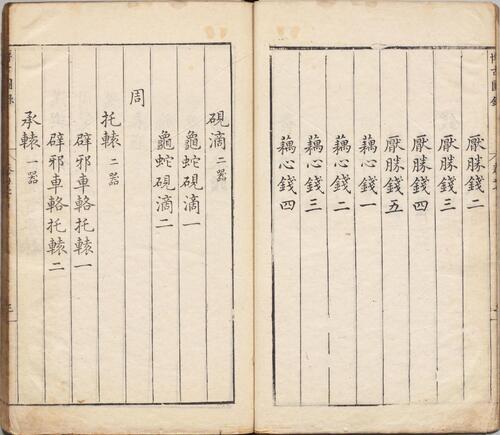 厭勝錢二
厭勝錢三
厭勝錢四
厭勝錢五
藕心錢一
藕心錢二
藕心錢三
藕心錢四
硯滴二器
龜蛇硯滴一
龜蛇硯滴二
周
托轅二器
辟邪車輅托轅一
辟邪車輅托轅二
承轅一器